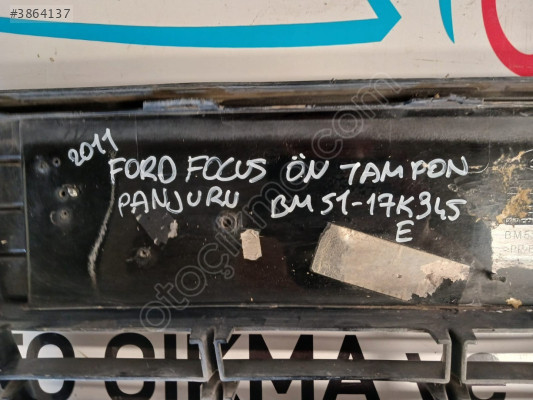 #3864137
2011
FORD FOCUS ÖN TAMPON
PANJURU BM51-17K945
E
BM5
otoçıkma
TO ÇIKMA ve